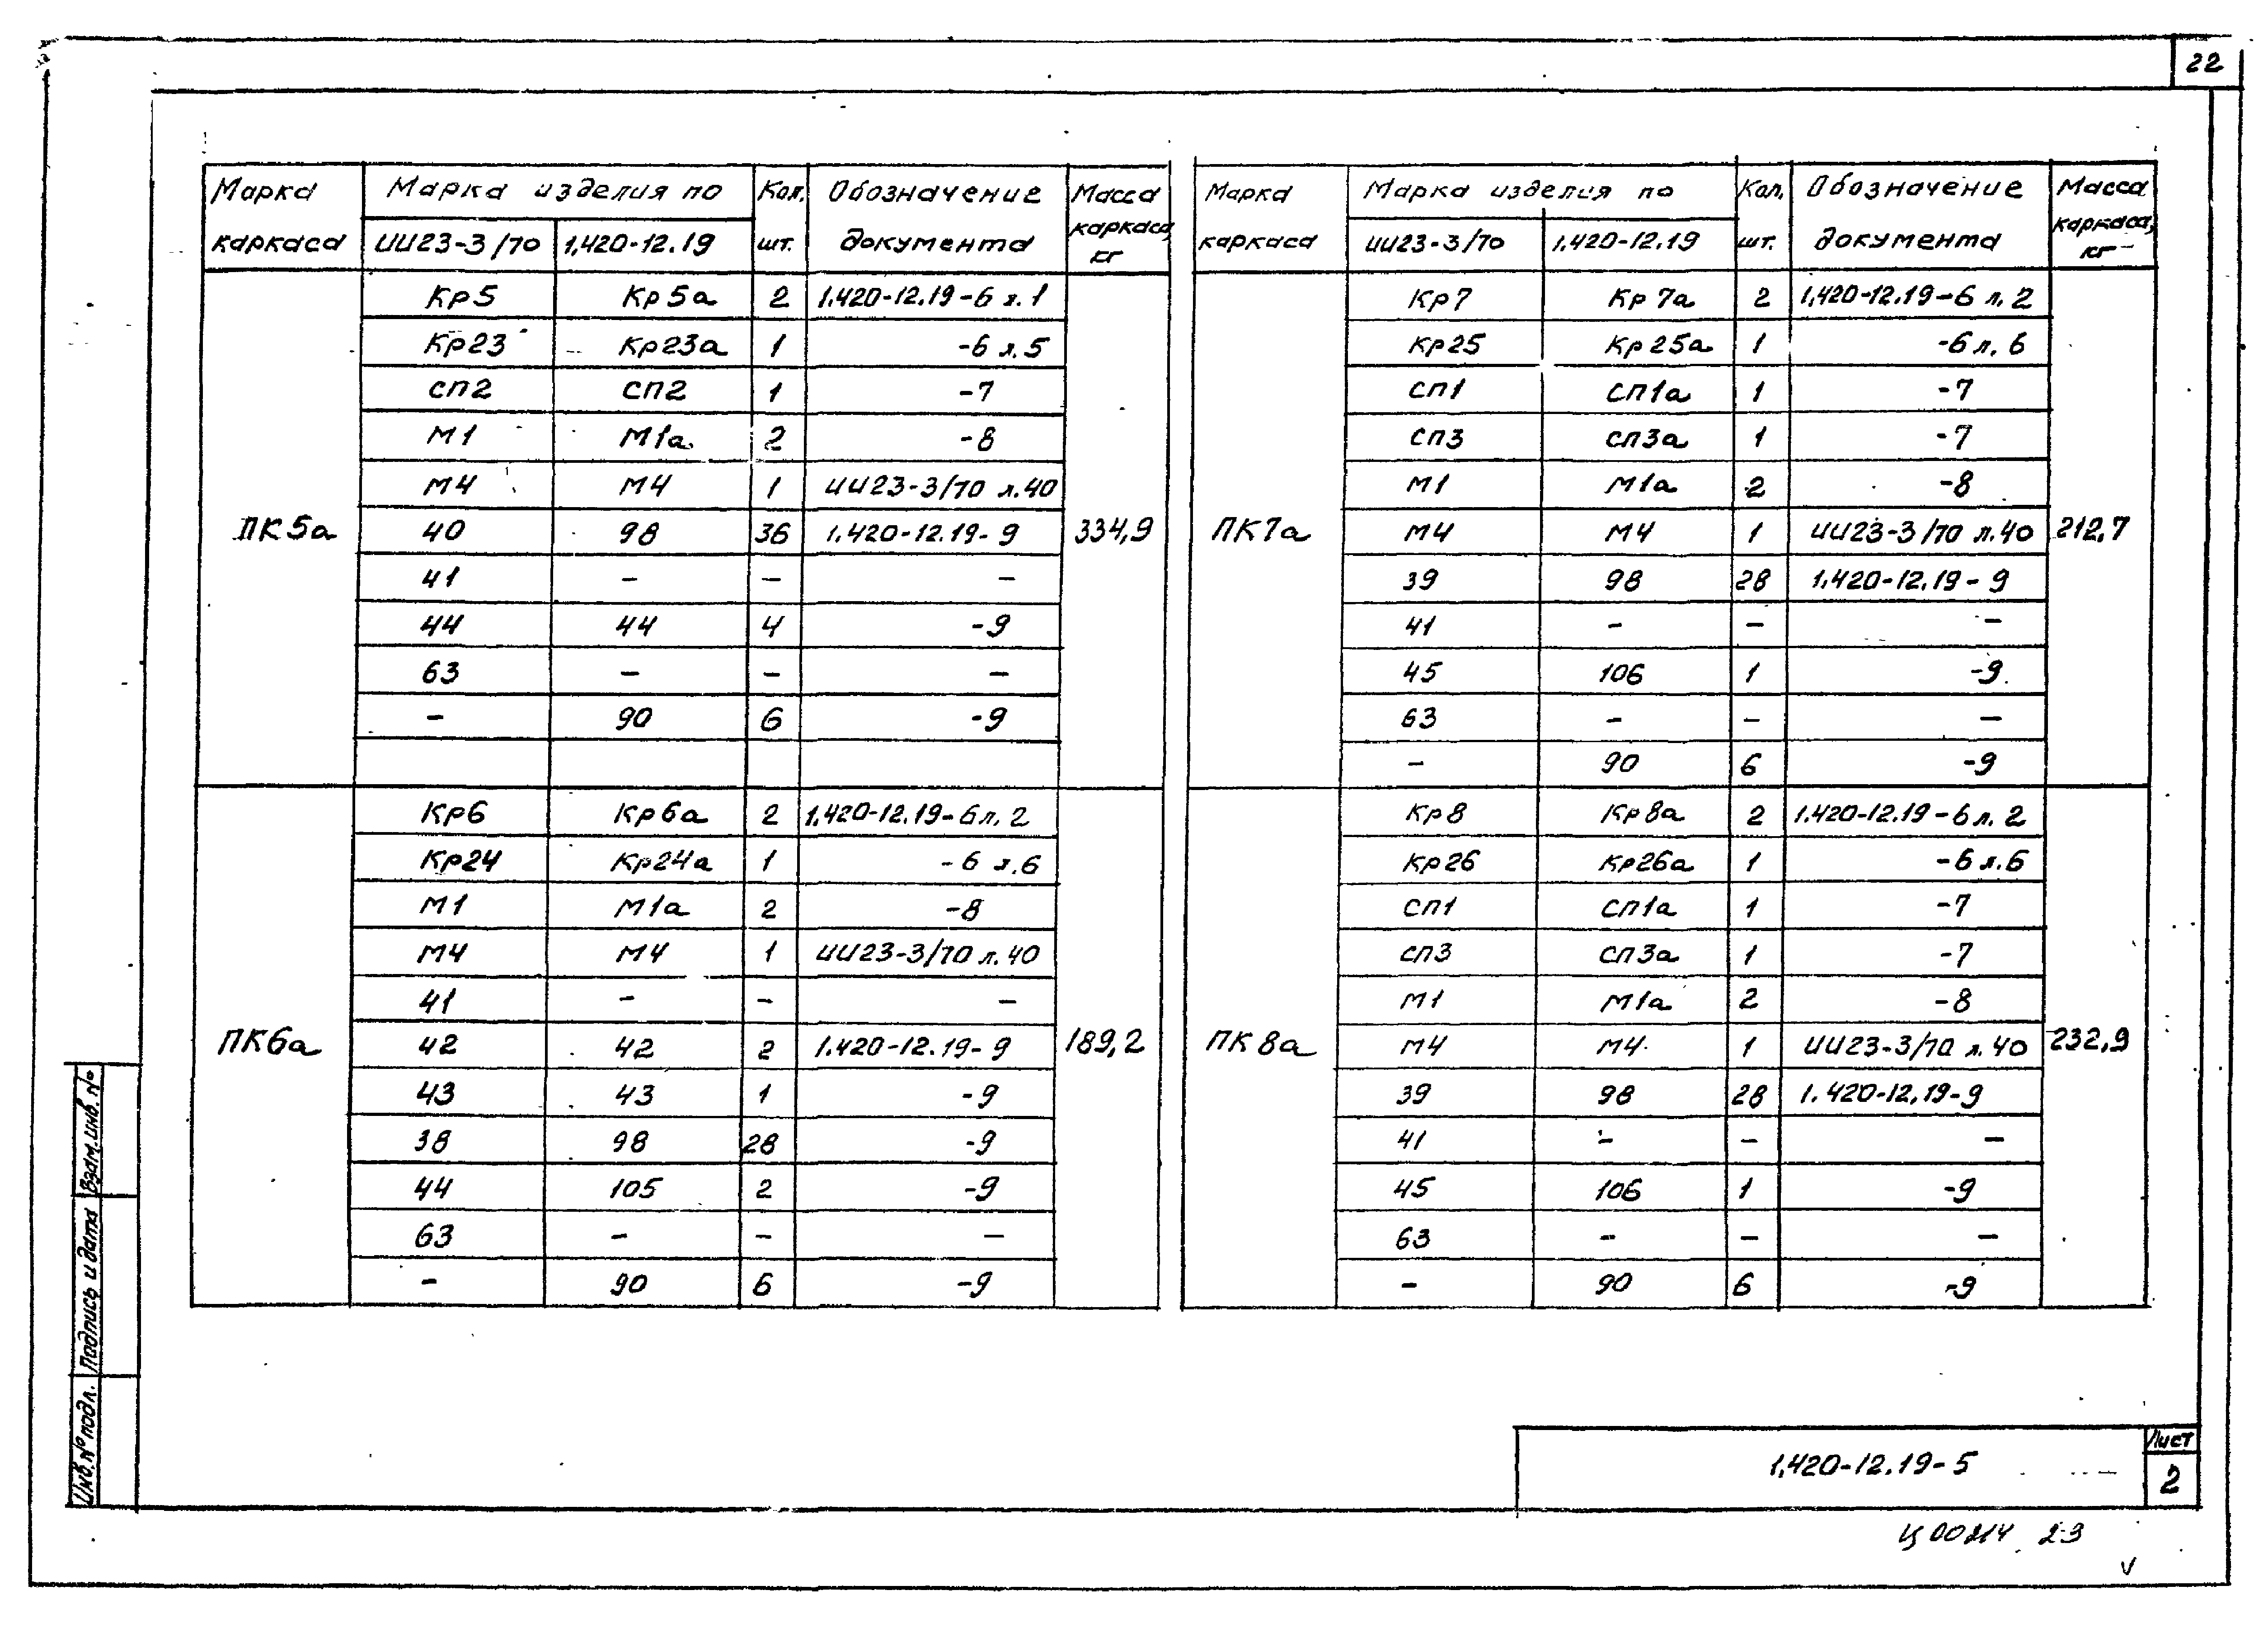 22
Марка каркаса | Марка изделия по | Кол. шт. | Обозначение документа | Масса каркаса, кг
ИИ23-3/70 | 1.420-12.19
ПК5а | 334,9
Кр5 | Кр5а | 2 | 1.420-12.19-6 л.1
Кр23 | Кр23а | 1 | -6 л.5
СП2 | СП2 | 1 | -7
М1 | М1а | 2 | -8
М4 | М4 | 1 | ИИ23-3/70 л.40
40 | 98 | 36 | 1.420-12.19-9
41 | – | – | –
44 | 44 | 4 | -9
63 | – | – | –
– | 90 | 6 | -9
ПК6а | 189,2
Кр6 | Кр6а | 2 | 1.420-12.19-6 л.2
Кр24 | Кр24а | 1 | -6 л.6
М1 | М1а | 2 | -8
М4 | М4 | 1 | ИИ23-3/70 л.40
41 | – | – | –
42 | 42 | 2 | 1.420-12.19-9
43 | 43 | 1 | -9
38 | 98 | 28 | -9
44 | 105 | 2 | -9
63 | – | – | –
– | 90 | 6 | -9
Марка каркаса | Марка изделия по | Кол. шт. | Обозначение документа | Масса каркаса, кг
ИИ23-3/70 | 1.420-12.19
ПК7а | 212,7
Кр7 | Кр7а | 2 | 1.420-12.19-6 л.2
Кр25 | Кр25а | 1 | -6 л.6
СП1 | СП1а | 1 | -7
СП3 | СП3а | 1 | -7
М1 | М1а | 2 | -8
М4 | М4 | 1 | ИИ23-3/70 л.40
39 | 98 | 28 | 1.420-12.19-9
41 | – | – | –
45 | 106 | 1 | -9
63 | – | – | –
– | 90 | 6 | -9
ПК8а | 232,9
Кр8 | Кр8а | 2 | 1.420-12.19-6 л.2
Кр26 | Кр26а | 1 | -6 л.6
СП1 | СП1а | 1 | -7
СП3 | СП3а | 1 | -7
М1 | М1а | 2 | -8
М4 | М4 | 1 | ИИ23-3/70 л.40
39 | 98 | 28 | 1.420-12.19-9
41 | – | – | –
45 | 106 | 1 | -9
63 | – | – | –
– | 90 | 6 | -9
Инв.№подл. Подпись и дата Взам.инв.№
1.420-12.19-5
Лист
2
Ц00214 23